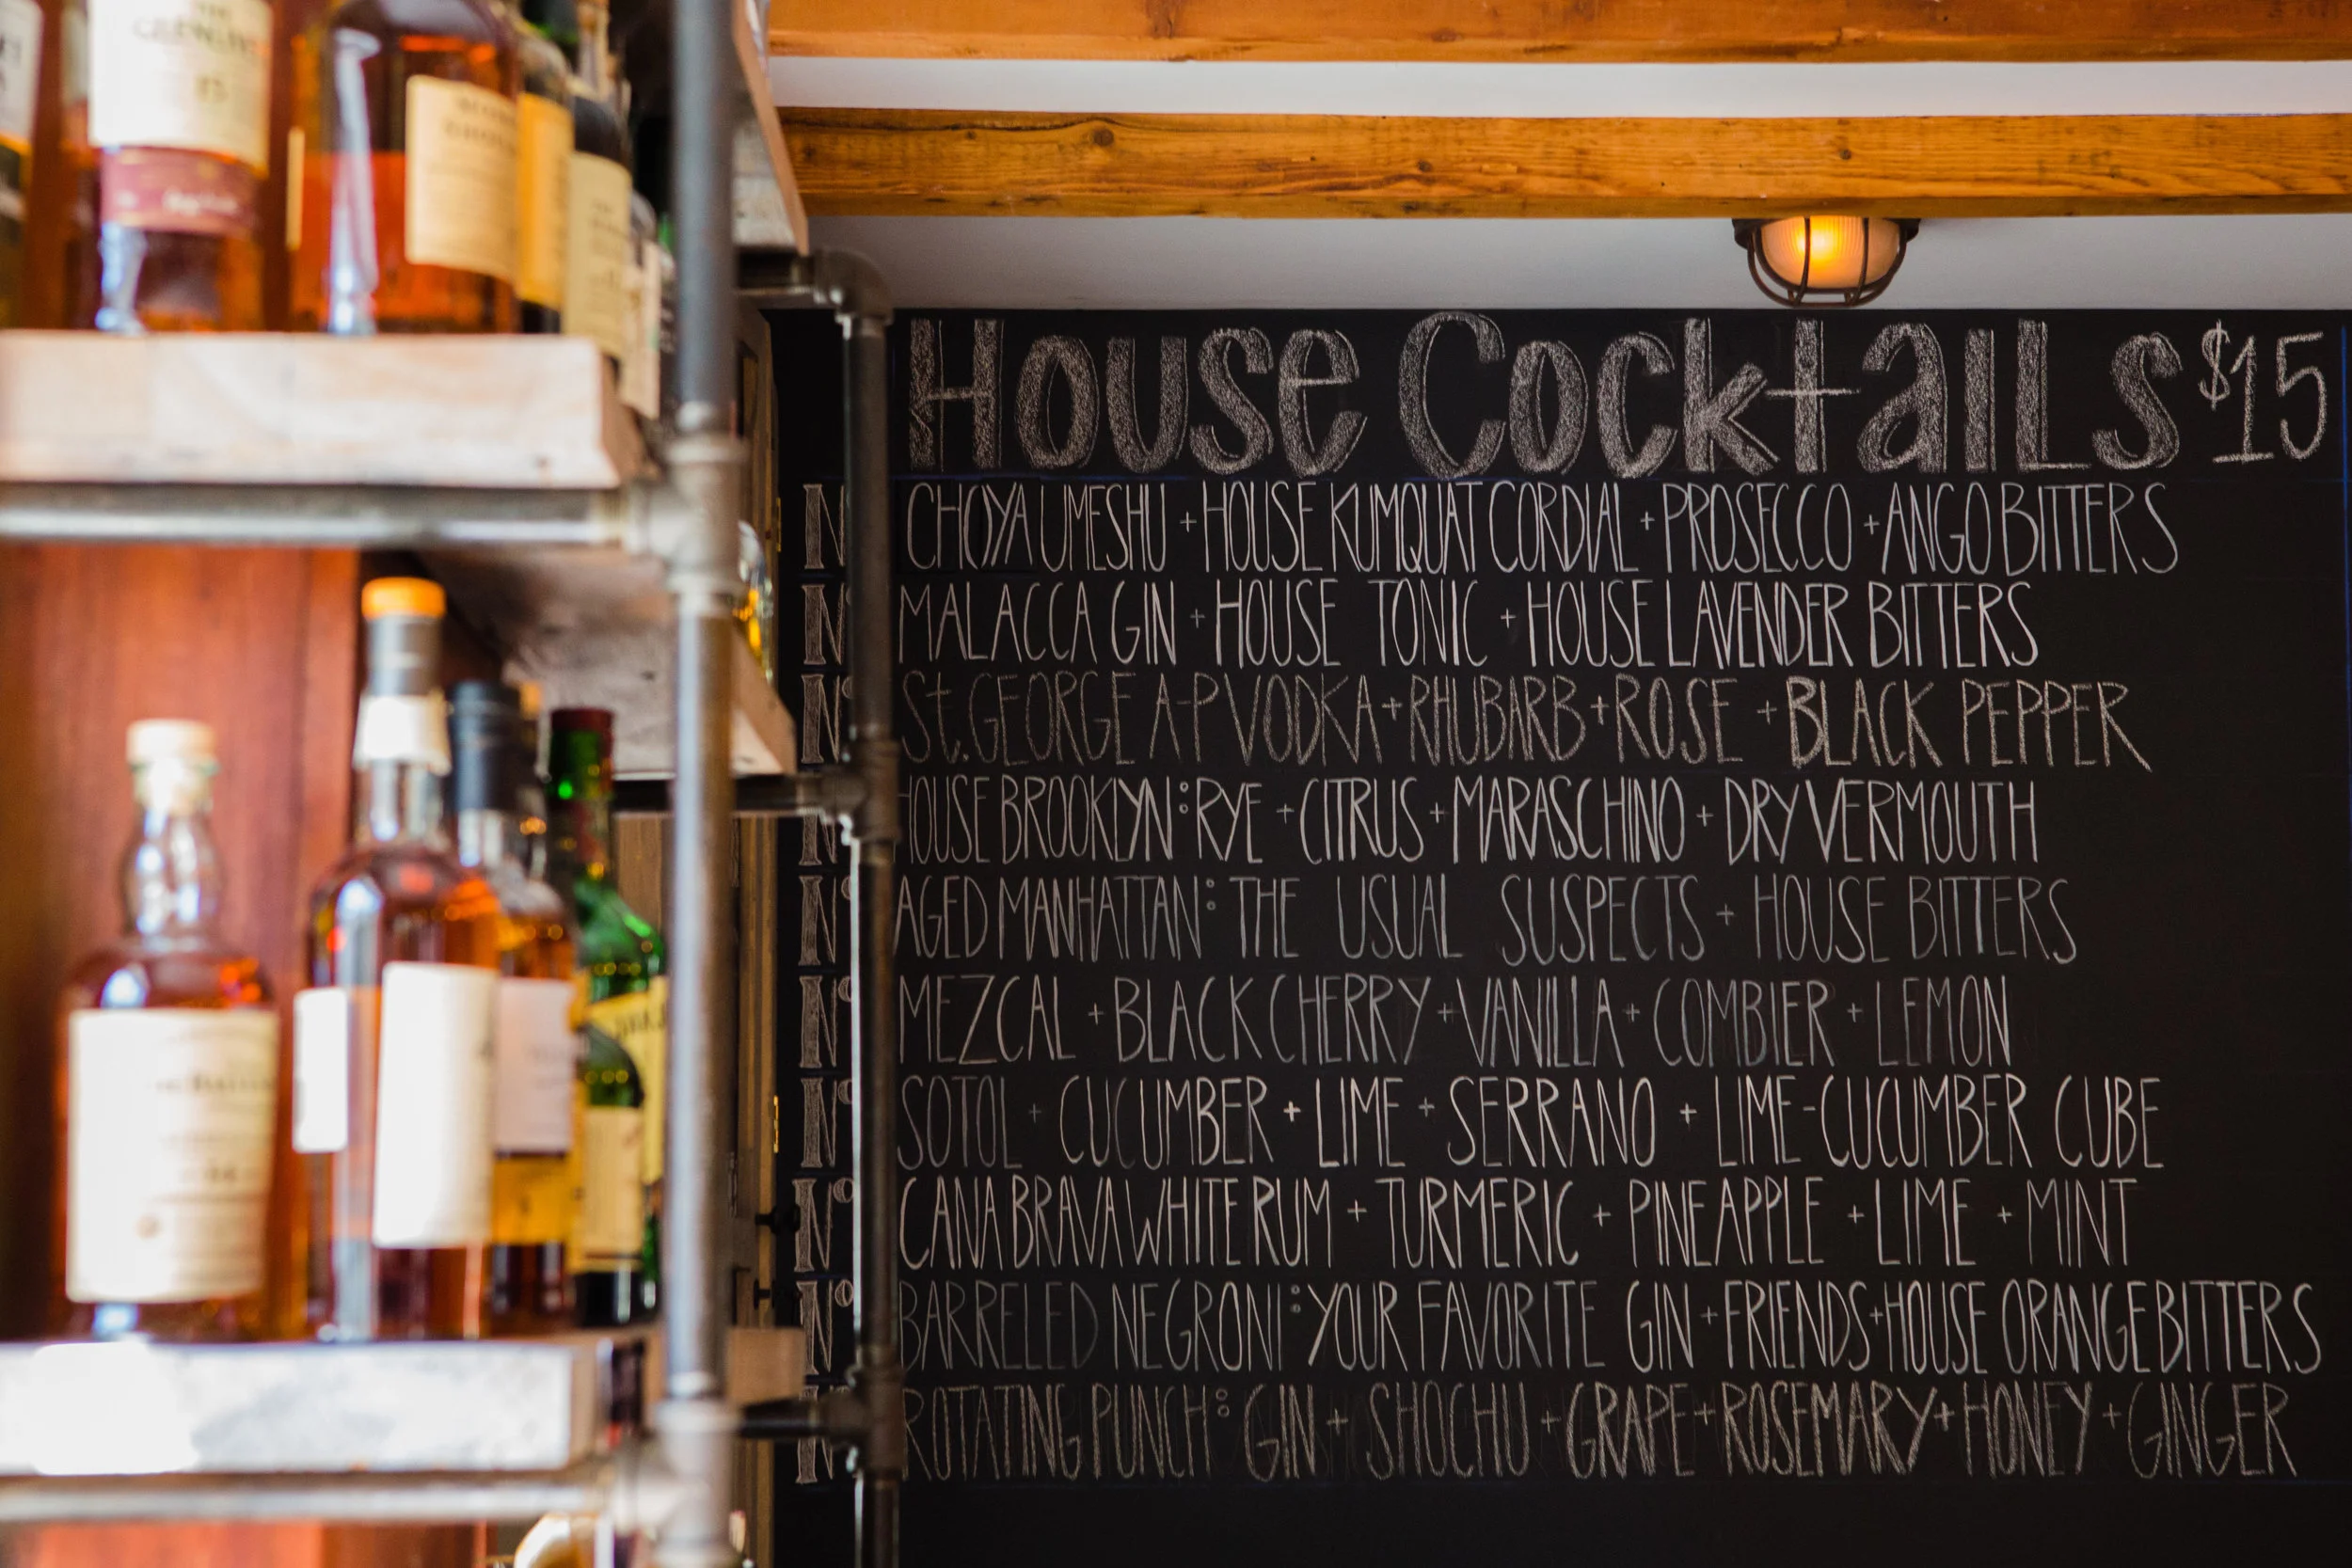 House Cocktails $15
Nº CHOYA UMESHU + HOUSE KUMQUAT CORDIAL + PROSECCO + ANGO BITTERS
Nº MALACCA GIN + HOUSE TONIC + HOUSE LAVENDER BITTERS
Nº St. GEORGE A-P VODKA + RHUBARB + ROSE + BLACK PEPPER
Nº HOUSE BROOKLYN: RYE + CITRUS + MARASCHINO + DRY VERMOUTH
Nº AGED MANHATTAN: THE USUAL SUSPECTS + HOUSE BITTERS
Nº MEZCAL + BLACK CHERRY + VANILLA + COMBIER + LEMON
Nº SOTOL + CUCUMBER + LIME + SERRANO + LIME-CUCUMBER CUBE
Nº CANA BRAVA WHITE RUM + TURMERIC + PINEAPPLE + LIME + MINT
Nº BARRELED NEGRONI: YOUR FAVORITE GIN + FRIENDS + HOUSE ORANGE BITTERS
Nº ROTATING PUNCH: GIN + SHOCHU + GRAPE + ROSEMARY + HONEY + GINGER